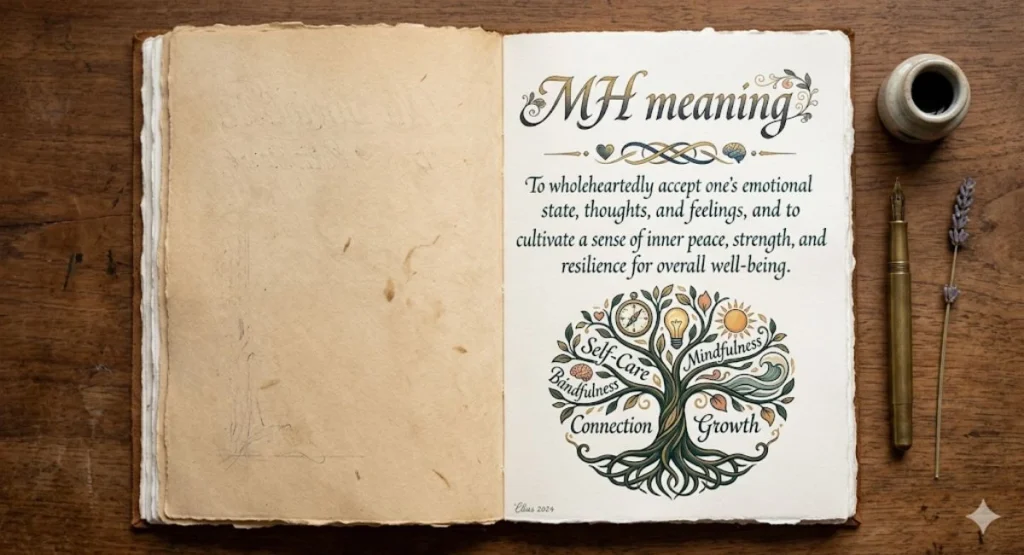 MH meaning
To wholeheartedly accept one's emotional
state, thoughts, and feelings, and to
cultivate a sense of inner peace, strength, and
resilience for overall well-being.
Self-Care
Mindfulness
Bandfulness
Connection
Growth
2024